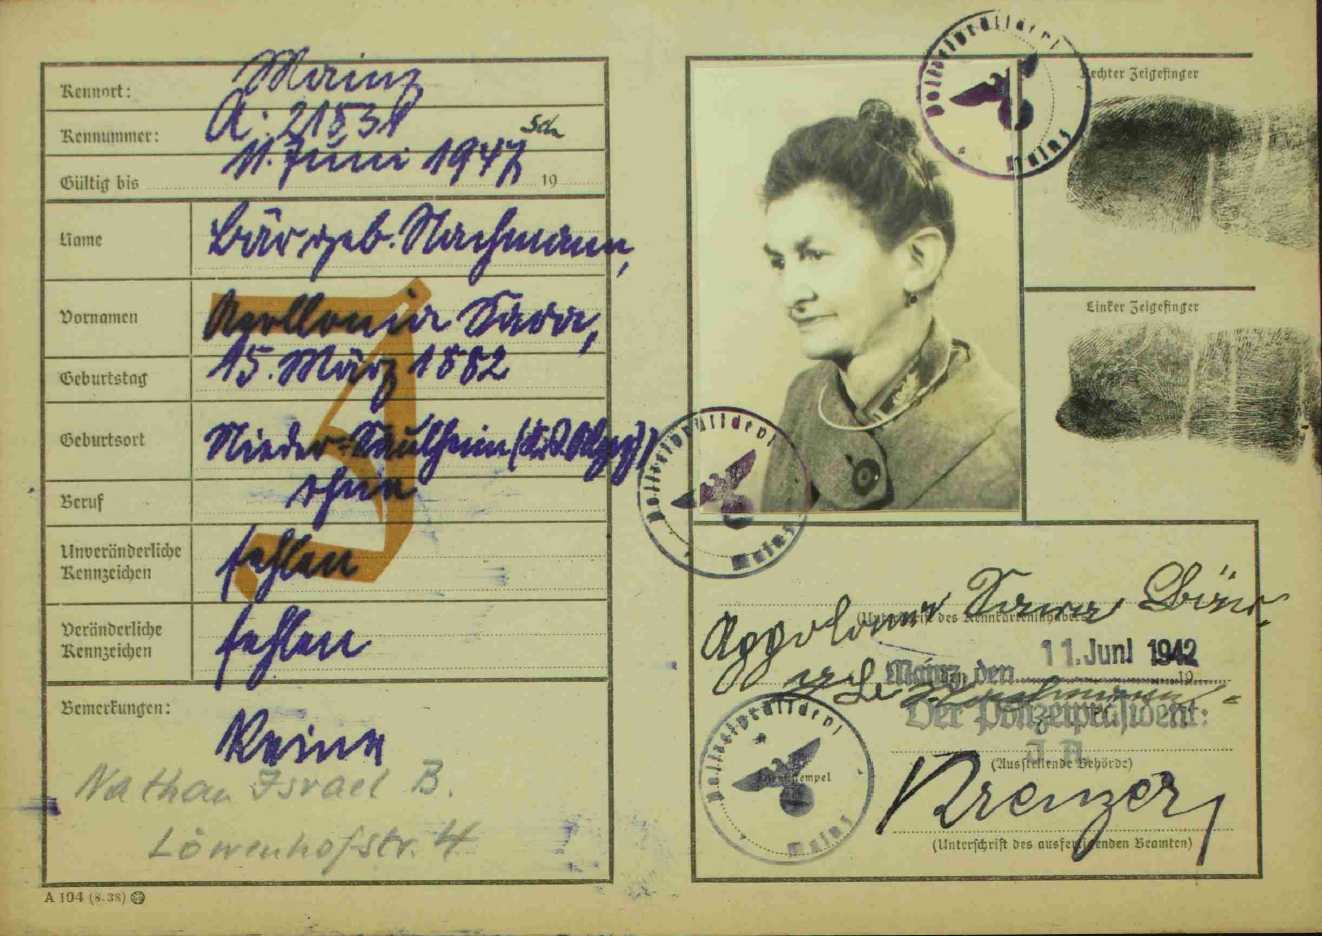 Kennort: Mainz
Kennummer: A: 21831
sch
Gültig bis 11. Juni 1947 19
Name Bär geb. Nachmann,
Vornamen Apollonia Sara,
Geburtstag 15. März 1882
Geburtsort Nieder-Saulheim (Krs. Alzey)
Beruf ohne
Unveränderliche
Kennzeichen fehlen
Veränderliche
Kennzeichen fehlen
Bemerkungen:
Keine
Nathan Israel B.
Löwenhofstr. 4
A 104 (8.38)
J
Polizeipräsident Mainz
Rechter Zeigefinger
Linker Zeigefinger
Polizeipräsident Mainz
Appolonia Sara Bär
(Unterschrift des Kennkarteninhabers)
geb. Nachmann
Mainz, den 11. Juni 1942 19
Der Polizeipräsident:
J. A.
(Ausstellende Behörde)
Polizeipräsident Mainz
Dienststempel
Krenzer
(Unterschrift des ausfertigenden Beamten)